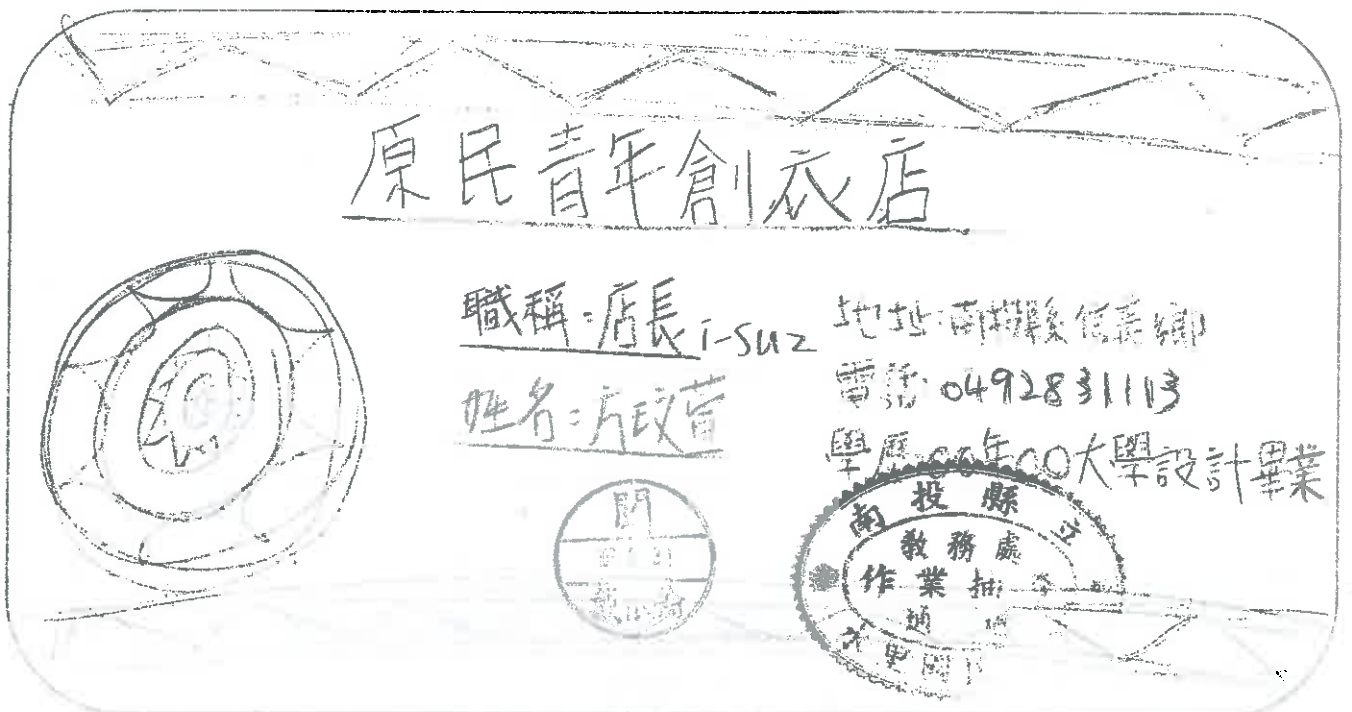 原民青年創衣店
職稱:店長 i-suz
姓名:方玟萱
地址:南投縣信義鄉
電話:0492831113
學歷:00年00大學設計畢業
南投縣立
教務處
作業抽